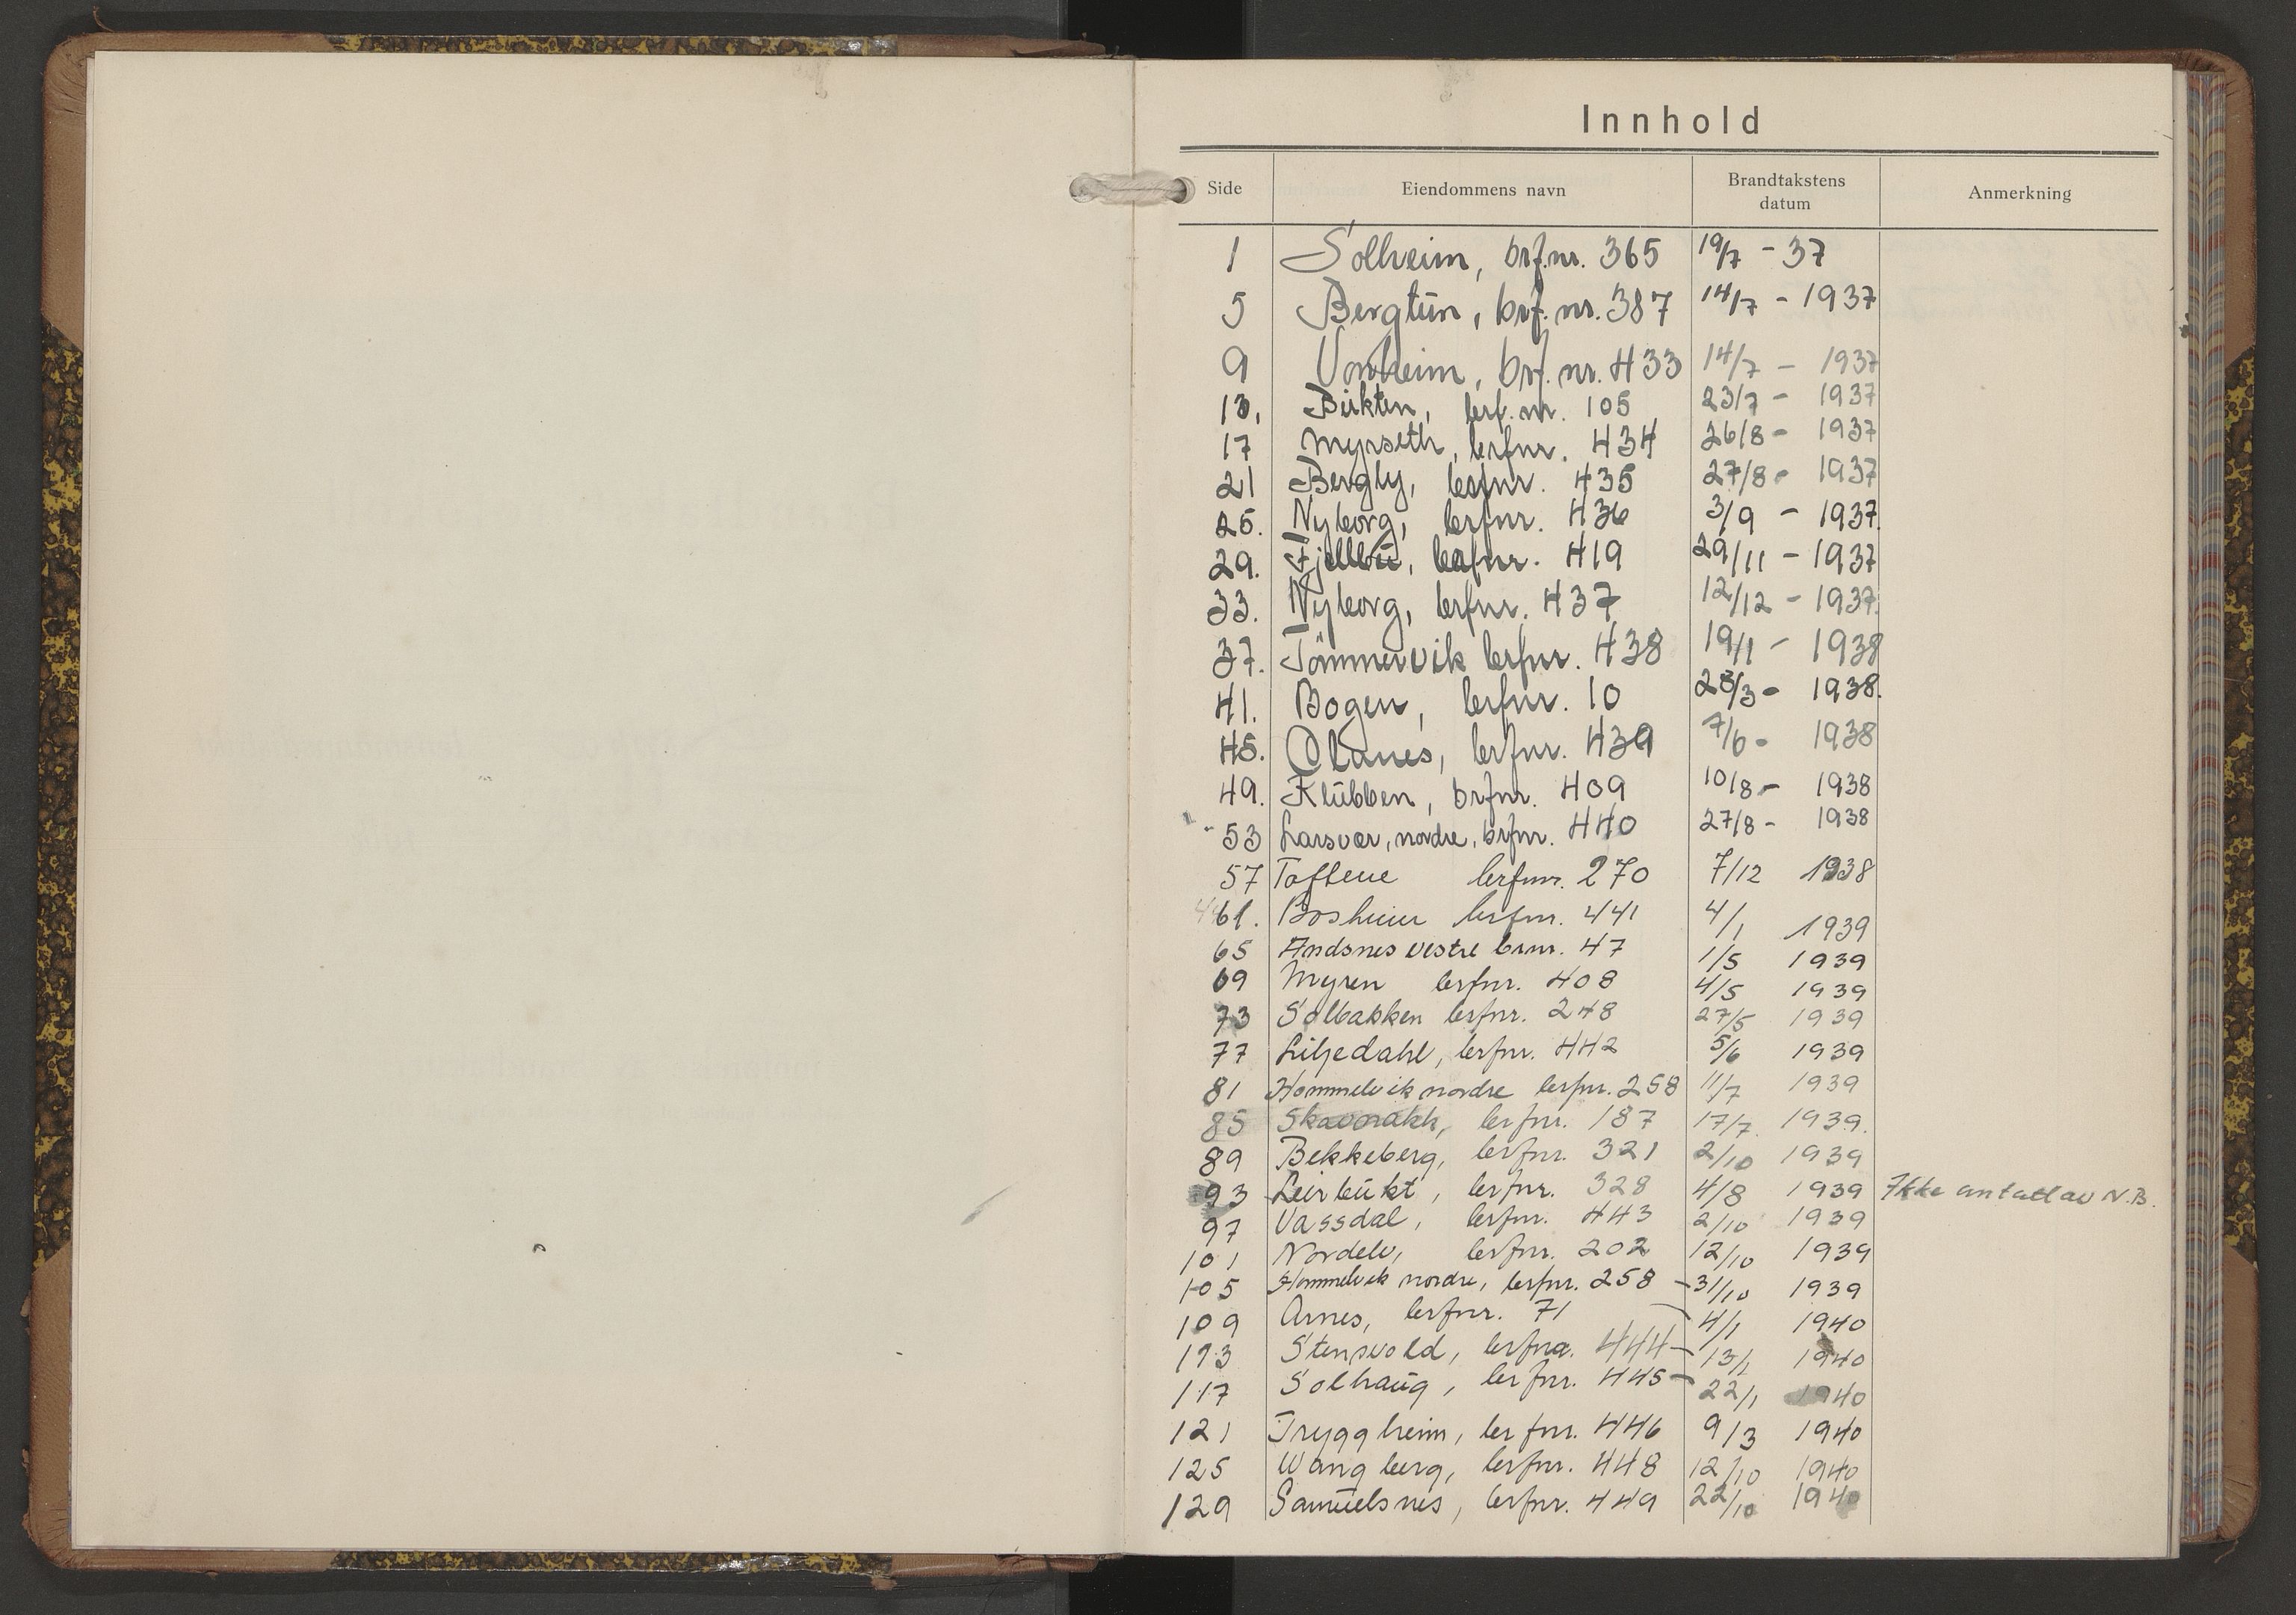 Innhold
Side Eiendommens navn Brandtakstens datum Anmerkning
1 Solheim, brf.nr. 365 19/7 - 37
5 Bergtún, brf.nr. 387 14/7 - 1937
9 Vonheim, brf.nr. 433 14/7 - 1937
13. brf.nr. 105 23/7 - 1937
17 Myrseth, brfnr. 434 26/8 - 1937
21 Bergly, brfnr. 435 27/8 - 1937
25. Nyborg, brfnr. 436 3/9 - 1937.
29. Fjellbú, brfnr. 419 29/11 - 1937
33. Nyborg, brfnr. 437 12/12 - 1937.
37. Tömmervik brfnr. 438 19/1 - 1938
41. Bogen, brfnr. 10 23/3 - 1938.
45. Olanes, brfnr. 439 7/6 - 1938
49. Klúbben, brfnr. 409 10/8 - 1938
53 Larsvær, nordre, brfnr. 440 27/8 - 1938
57 Toftene brfnr. 270 7/12 1938
61. Bosheim brfnr. 441 4/1 1939
65 Andsnes vestre brnr. 47 1/5 1939
69 Myren brfnr. 408 4/5 1939
73 Solbakken brfnr. 248 27/5 1939
77 Liljedahl, brfnr. 442 5/6 1939
81 Hommelvik nordre brfnr. 258 11/7 1939
85 brfnr. 187 17/7 1939.
89 Bekkeberg, brfnr. 321 2/10 1939
93 Leirbúkt, brfnr. 328 4/8 1939 Ikke antatt av N.B.
97 Vassdal, brfnr. 443 2/10 1939
101 Nordelv, brfnr. 202 12/10 1939
105 Hommelvik nordre, brfnr. 258 - 31/10 1939
109 Arnes, brfnr. 71 - 4/1 1940
113 Stensvold, brfnr. 444 - 13/1 1940
117 Solhaúg, brfnr. 445 - 22/1 1940
121 Tryggheim, brfnr. 446 9/3 1940
125 Wangberg, brfnr. 448 12/10 1940
129 Samúelsnes, brfnr. 449 22/10 1940